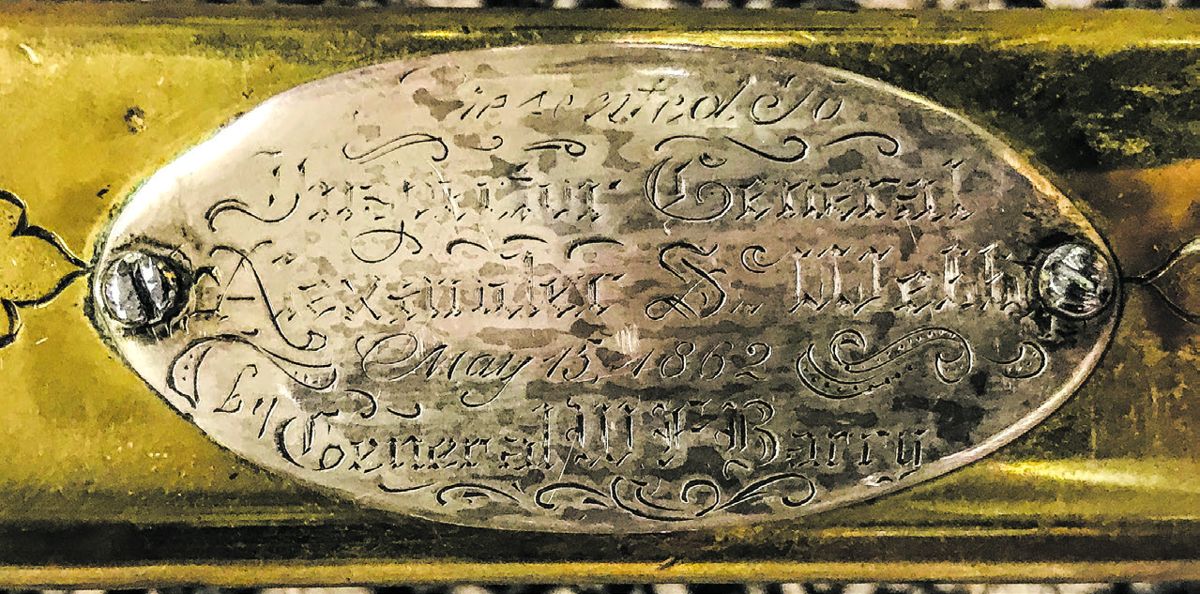 Presented To
Inspector General
Alexander S. Webb
May 15, 1862
by
General W F Barry